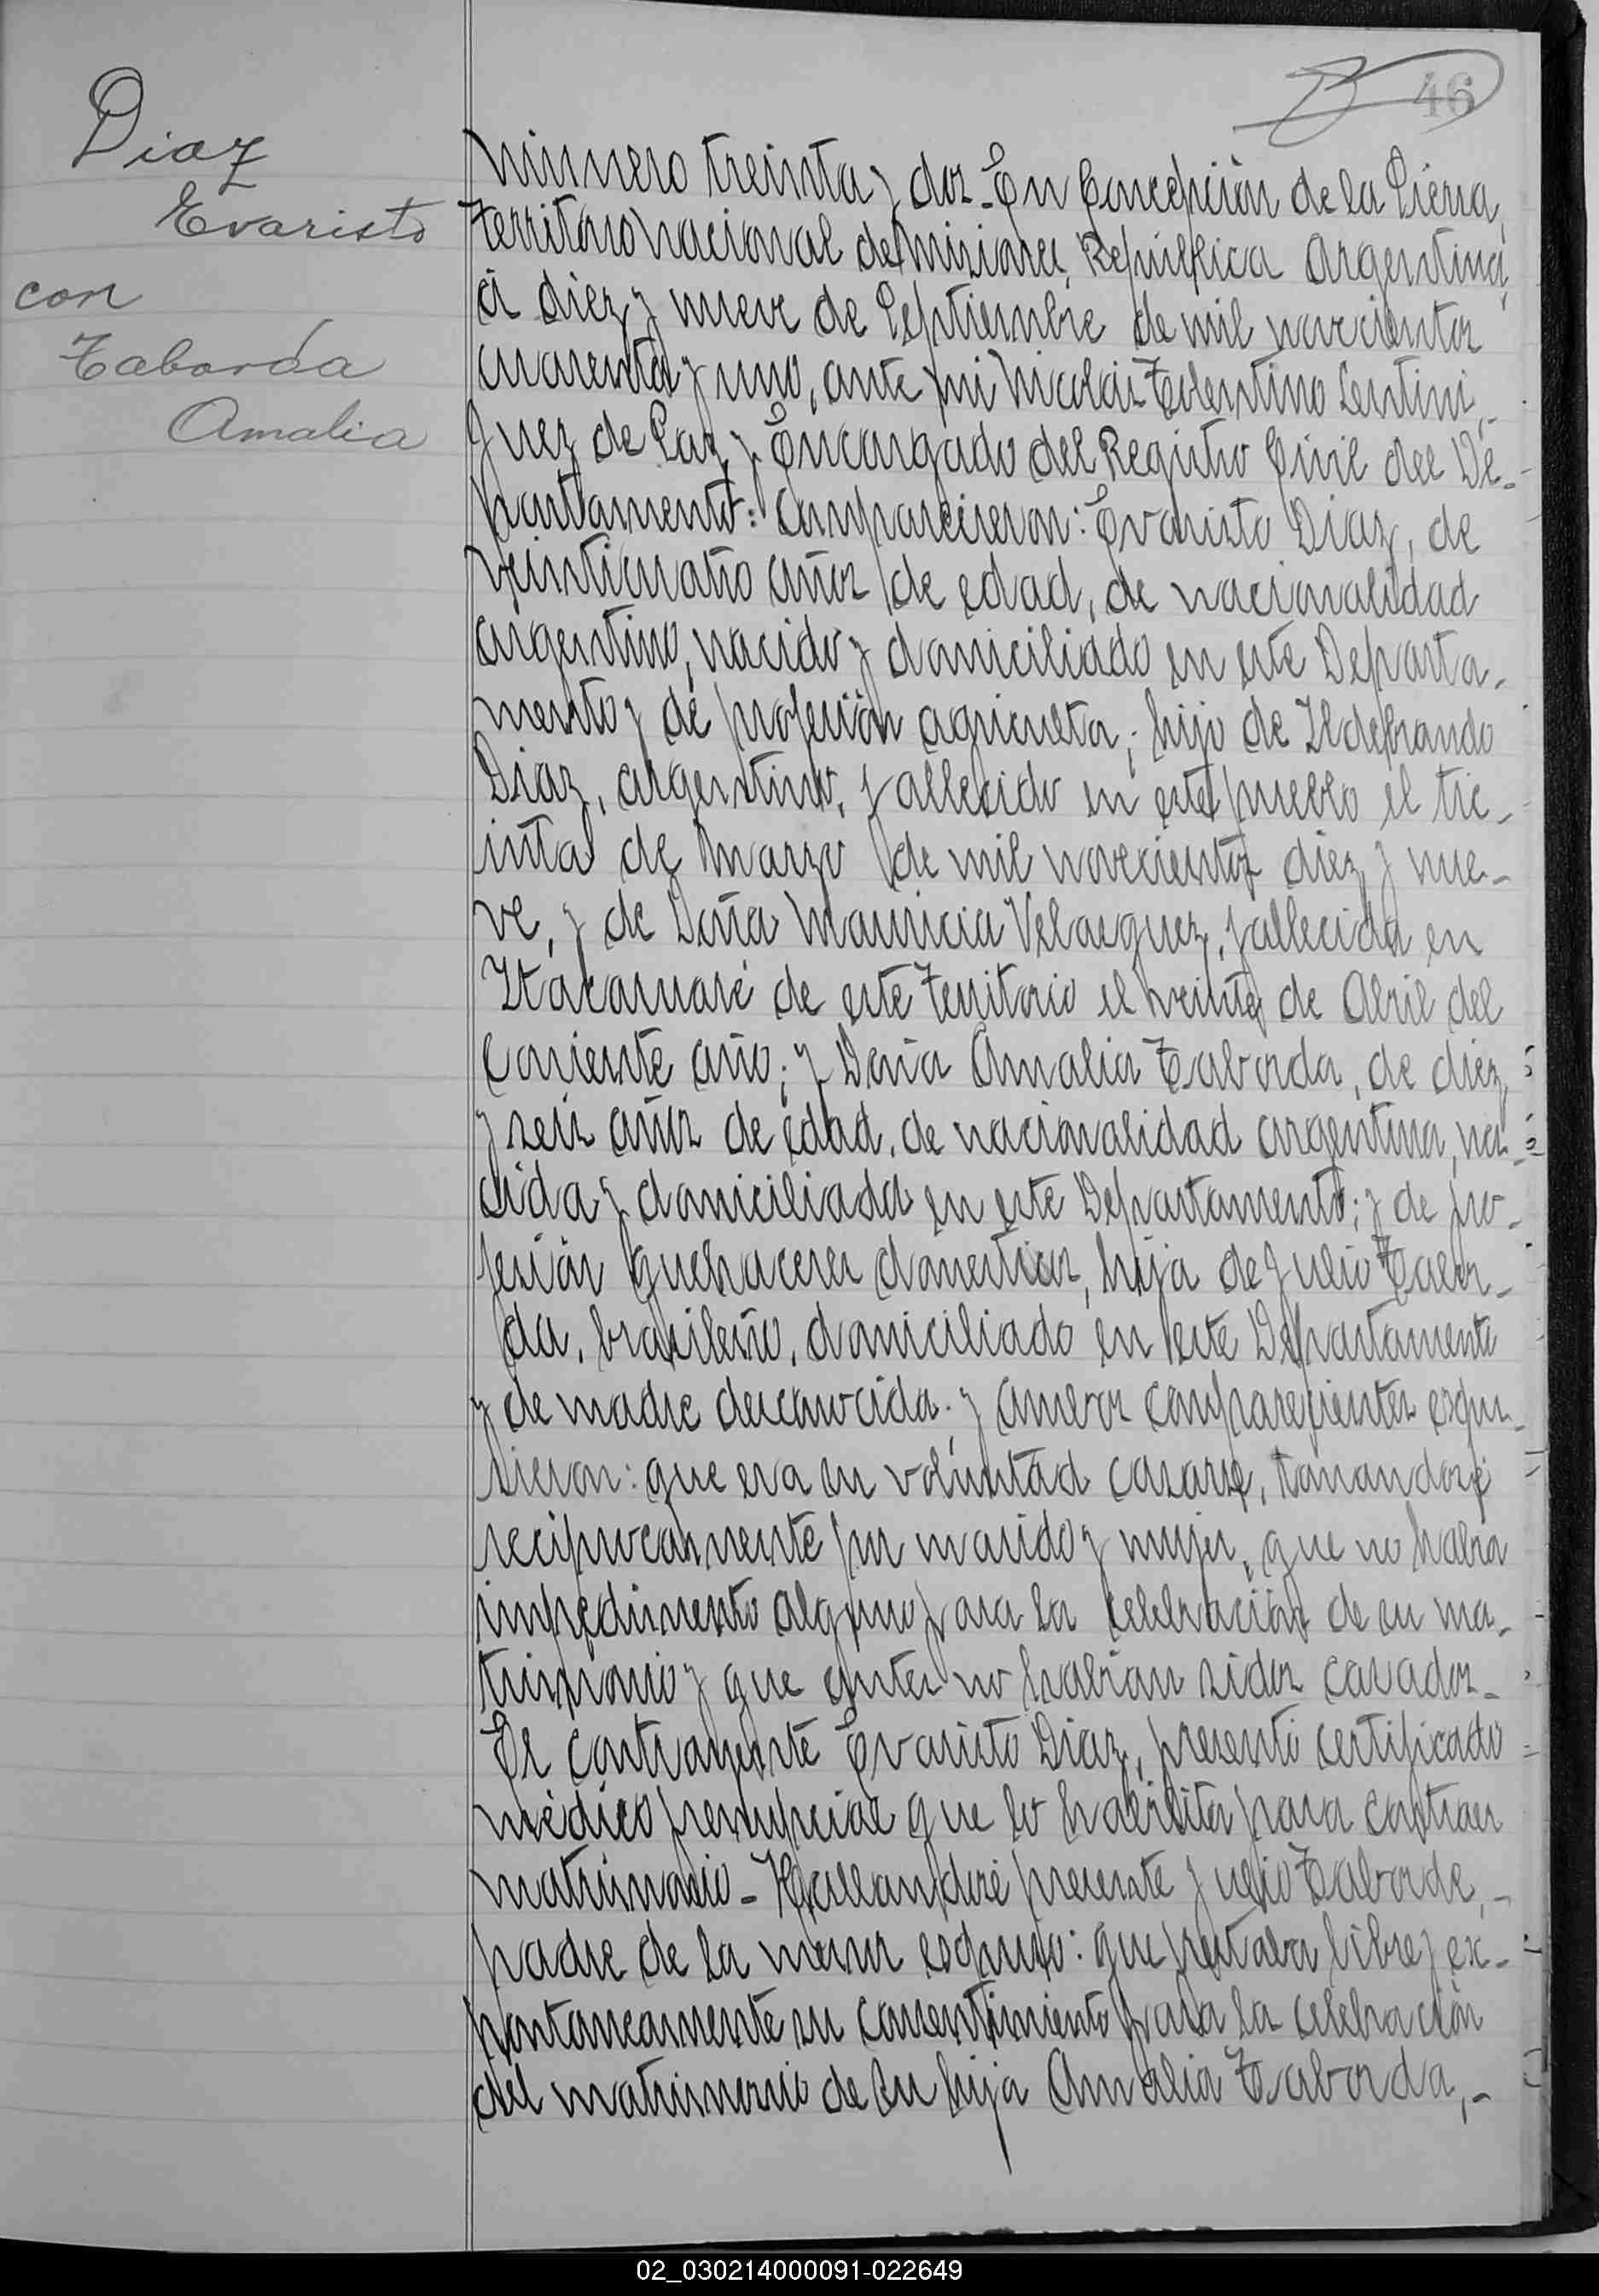 46
Diaz
Evaristo
con
Taborda
Amalia
Número treinta y dos - En Concepción de la Sierra,
Territorio Nacional de Misiones, República Argentina,
á diez y nueve de Septiembre de mil novecientos
cuarenta y uno, ante mi Nicolás Tolentino Sentini,-
Juez de Paz y Encargado del Registro Civil del De-
partamento: Comparecieron: Evaristo Diaz, de
veinticuatro años de edad, de nacionalidad
argentino, nacido y domiciliado en este Departa-
mento y de profesión agriculta; hijo de Ildebrando
Diaz, argentino, fallecido en este pueblo el tre-
inta de Marzo de mil novecientos diez y nue-
ve, y de Doña Mauricia Velasquez, fallecida en
Itacaruaré de este Territorio el veinte de Abril del
corriente año; y Doña Amalia Taborda, de diez
y seis años de edad, de nacionalidad argentina, na-
cida y domiciliada en este Departamento; y de pro-
fesión quehaceres domesticos, hija de Julio Tabor-
da, brasileño, domiciliado en este Departamento
y de madre desconocida; y ambos comparecientes espu-
sieron: que era su voluntad casarse, tomandose
reciprocamente por marido y mujer, que no habia
impedimento alguno para la celebración de su ma-
trimonio y que antes no habian sidos casados-
El contrayente Evaristo Diaz, presentó certificado
médico prenupcial que lo habilita para contraer
matrimonio - Hallandose presente Julio Taborda,-
padre de la menor espuso: que prestaba libre y ex-
pontaneamente su consentimiento para la celebración
del matrimonio de su hija Amalia Taborda,-
02_030214000091-022649